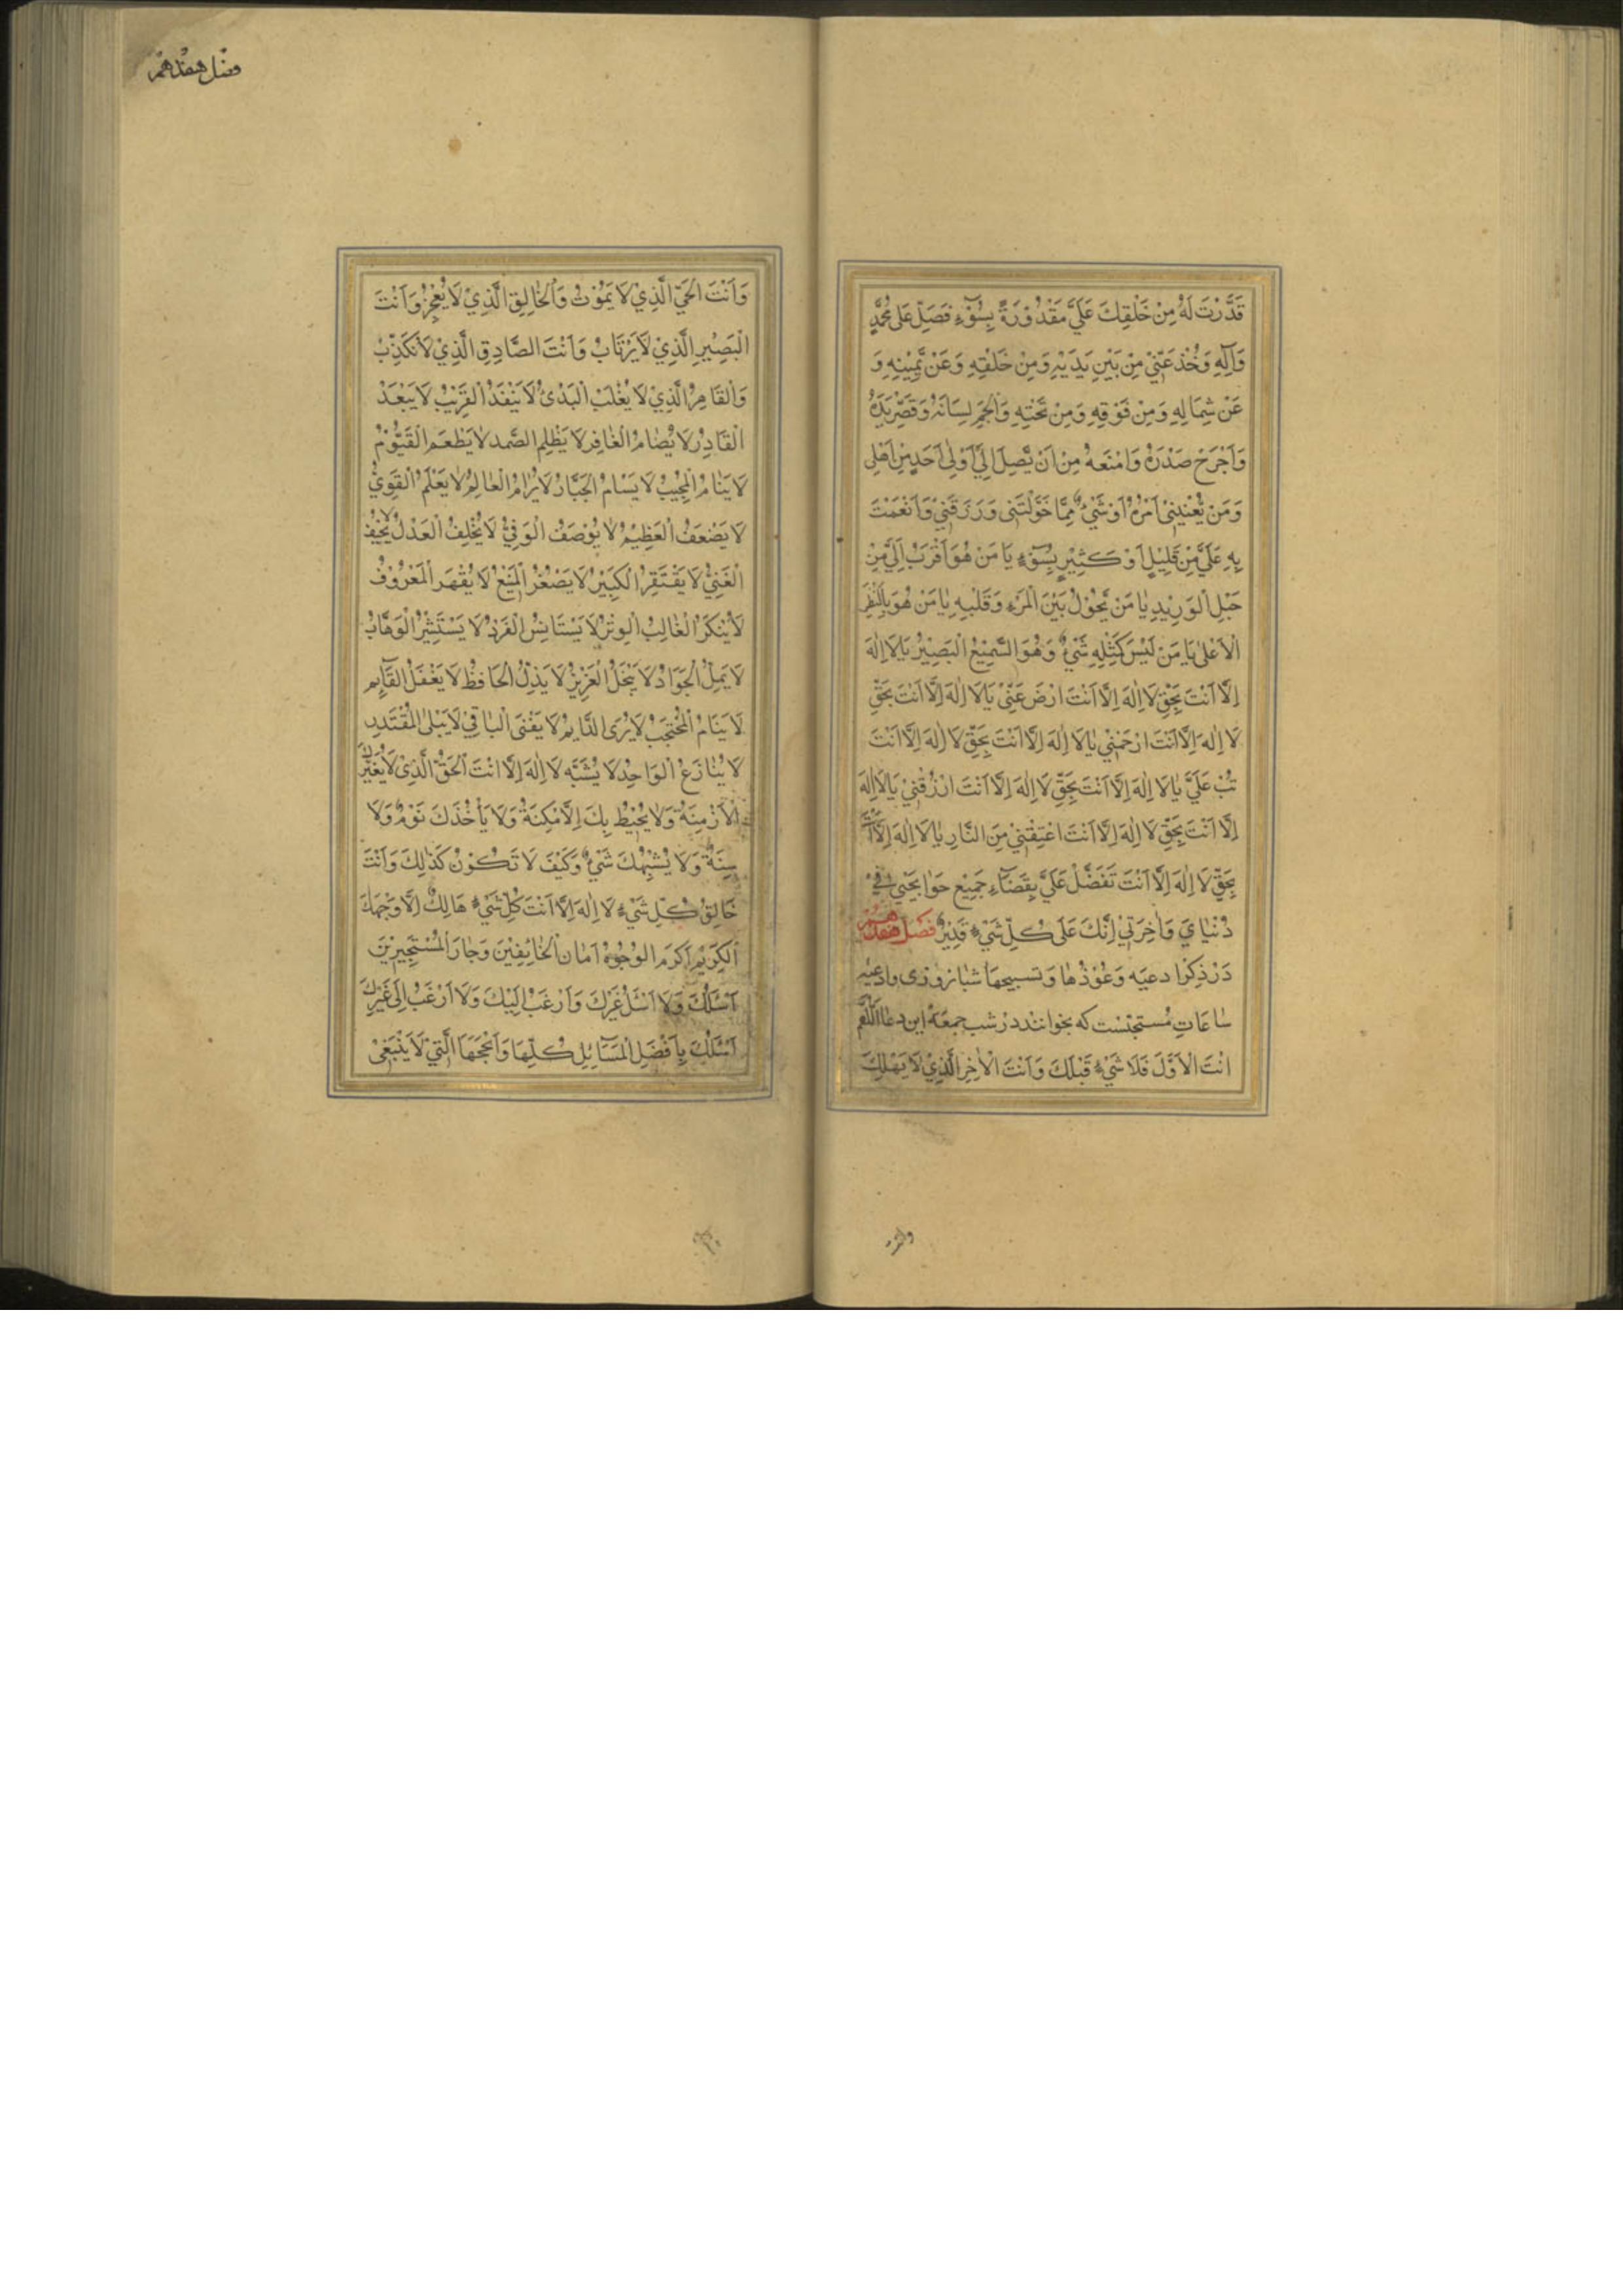 قَدَّرْتَ لَهُ مِنْ خَلْقِكَ عَلَيَّ مَقْدُوْرَةً بِسُوْٓءٍ فَصَلِّ عَلٰى مُحَمَّدٍ
وَآلِهِ وَخُذْ عَنِّيْ مِنْ بَيْنِ يَدَيْهِ وَمِنْ خَلْفِهِ وَعَنْ يَمِيْنِهِ وَ
عَنْ شِمَالِهِ وَمِنْ فَوْقِهِ وَمِنْ تَحْتِهِ وَالْجِمْ لِسَانَهُ وَقَصِّرْ يَدَهُ
وَاَجْرَحْ صَدْرَهُ وَامْنَعْهُ مِنْ اَنْ يَّصِلَ اِلَيَّ اَوْ لِىْ اَحَدٍ مِنْ اَهْلِى
وَمَنْ يُّعْنِيْنِىْ اَمْرُهُ اَوْ شَيْءٌ مِمَّا خَوَّلْتَنِى وَرَزَقْتَنِيْ وَاَنْعَمْتَ
بِهِ عَلَيَّ مِنْ قَلِيْلٍ اَوْ كَثِيْرٍ بِسُوْٓءٍ يَا مَنْ هُوَ اَقْرَبُ اِلَيَّ مِنْ
حَبْلِ الْوَرِيْدِ يَا مَنْ يَحُوْلُ بَيْنَ الْمَرْءِ وَقَلْبِهِ يَا مَنْ هُوَ بِالْمَنْظَرِ
الْاَعْلٰى يَا مَنْ لَيْسَ كَمِثْلِهِ شَيْءٌ وَهُوَ السَّمِيْعُ الْبَصِيْرُ يَا لَا اِلٰهَ
اِلَّا اَنْتَ بِحَقِّ لَا اِلٰهَ اِلَّا اَنْتَ ارْضَ عَنِّيْ يَا لَا اِلٰهَ اِلَّا اَنْتَ بِحَقِّ
لَا اِلٰهَ اِلَّا اَنْتَ ارْحَمْنِيْ يَا لَا اِلٰهَ اِلَّا اَنْتَ بِحَقِّ لَا اِلٰهَ اِلَّا اَنْتَ
تُبْ عَلَيَّ يَا لَا اِلٰهَ اِلَّا اَنْتَ بِحَقِّ لَا اِلٰهَ اِلَّا اَنْتَ ارْزُقْنِيْ يَا لَا اِلٰهَ
اِلَّا اَنْتَ بِحَقِّ لَا اِلٰهَ اِلَّا اَنْتَ اعْتِقْنِيْ مِنَ النَّارِ يَا لَا اِلٰهَ اِلَّا اَنْتَ
بِحَقِّ لَا اِلٰهَ اِلَّا اَنْتَ تَفَضَّلْ عَلَيَّ بِقَضَآءِ جَمِيْعِ حَوَايِجِيْ فِيْ
دُنْيَايَ وَاٰخِرَتِيْ اِنَّكَ عَلٰى كُلِّ شَيْءٍ قَدِيْرٌ فَصْل هفدهم
دَرْ ذِكْر ادعيه وَعُوْذْهَا وَتسبيحهَا شبانروزى وادعيه
سَاعَاتِ مُستجنست كه بخوانند در شب جمعَه اين دعا اَللّٰهُمَّ
اَنْتَ الْاَوَّلَ فَلَا شَيْءَ قَبْلَكَ وَاَنْتَ الْاٰخِرِ الَّذِيْ لَا يَهْلِكُ
وانت
فصل هفدهم
وَاَنْتَ الْحَيِّ الَّذِيْ لَا يَمُوْتُ وَالْخَالِقِ الَّذِيْ لَا يُعْجِزُ وَاَنْتَ
الْبَصِيْرِ الَّذِيْ لَا يَرْتَابُ وَاَنْتَ الصَّادِقِ الَّذِيْ لَا نَكْذِبُ
وَالْقَاهِرُ الَّذِيْ لَا يُغْلَبُ الْبَدْئُ لَا يَنْفَدُ الْقَرِيْبُ لَا يَبْعُدْ
الْقَادِرُ لَا يُضَامُ الْغَافِرِ لَا يَظْلِمُ الصَّمد لَا يَطْعَم الْقَيُّوْمُ
لَا يَنَامُ الْمُجِيْبُ لَا يَسْاَمُ الْجَبَّارُ لَا يُرَامُ الْعَالِمُ لَا يَعْلَمُ الْقَوِيُّ
لَا يَضْعَفُ الْعَظِيْمُ لَا يُوْصَفُ الْوَفِيُّ لَا يُخْلِفُ الْعَدْلُ لَا يَحِيْفُ
الْغَنِيُّ لَا يَفْتَقِرُ الْكَبِيْرُ لَا يَصْغُرُ الْمَنِيْعُ لَا يُقْهَرَ الْمَعْرُوْفُ
لَا يُنْكَرُ الْغَالِبُ الْوِتْرُ لَا يَسْتَانِسُ الْفَرْدُ لَا يَسْتَشِيْرُ الْوَهَّابُ
لَا يَمِلُّ الْجَوَادُ لَا يَبْخَلُ الْعَزِيْزُ لَا يَذِلُّ الْحَافِظُ لَا يَغْفَلُ الْقَآئِم
لَا يَنَامُ الْمُحْتَجِبُ لَا يُرٰى الدَّايِمُ لَا يَفْنَى الْبَاقِيْ لَا يَبْلٰى الْمُقْتَدِر
لَا يُنَازَعُ الْوَاحِدُ لَا يُشَبَّه لَا اِلٰهَ اِلَّا اَنْتَ الْحَقُّ الَّذِيْ لَا يُغَيِّرُكَ
الْاَزْمِنَةُ وَلَا يُحِيْطُ بِكَ الْاَمْكِنَةُ وَلَا يَأْخُذُكَ نَوْمٌ وَلَا
سِنَةٌ وَلَا يُشْبِهُكَ شَيْءٌ وَكَيْفَ لَا تَكُوْنُ كَذٰلِكَ وَاَنْتَ
خَالِقُ كُلِّ شَيْءٍ لَا اِلٰهَ اِلَّا اَنْتَ كُلِّ شَيْءٍ هَالِكٌ اِلَّا وَجْهَكَ
الْكَرِيْم اَكْرَمَ الْوُجُوْهُ اَمَانَ الْخَائِفِيْنَ وَجَارَ الْمُسْتَجِيْرِيْنَ
اَسْئَلُكَ وَلَا اَسْئَلُ غَيْرَكَ وَاَرْغَبُ اِلَيْكَ وَلَا اَرْغَبُ اِلٰى غَيْرِكَ
اَسْئَلُكَ بِاَفْضَلِ الْمَسَآئِلِ كُلِّهَا وَاَنْجَحِهَا الَّتِيْ لَا يَنْبَغِيْ